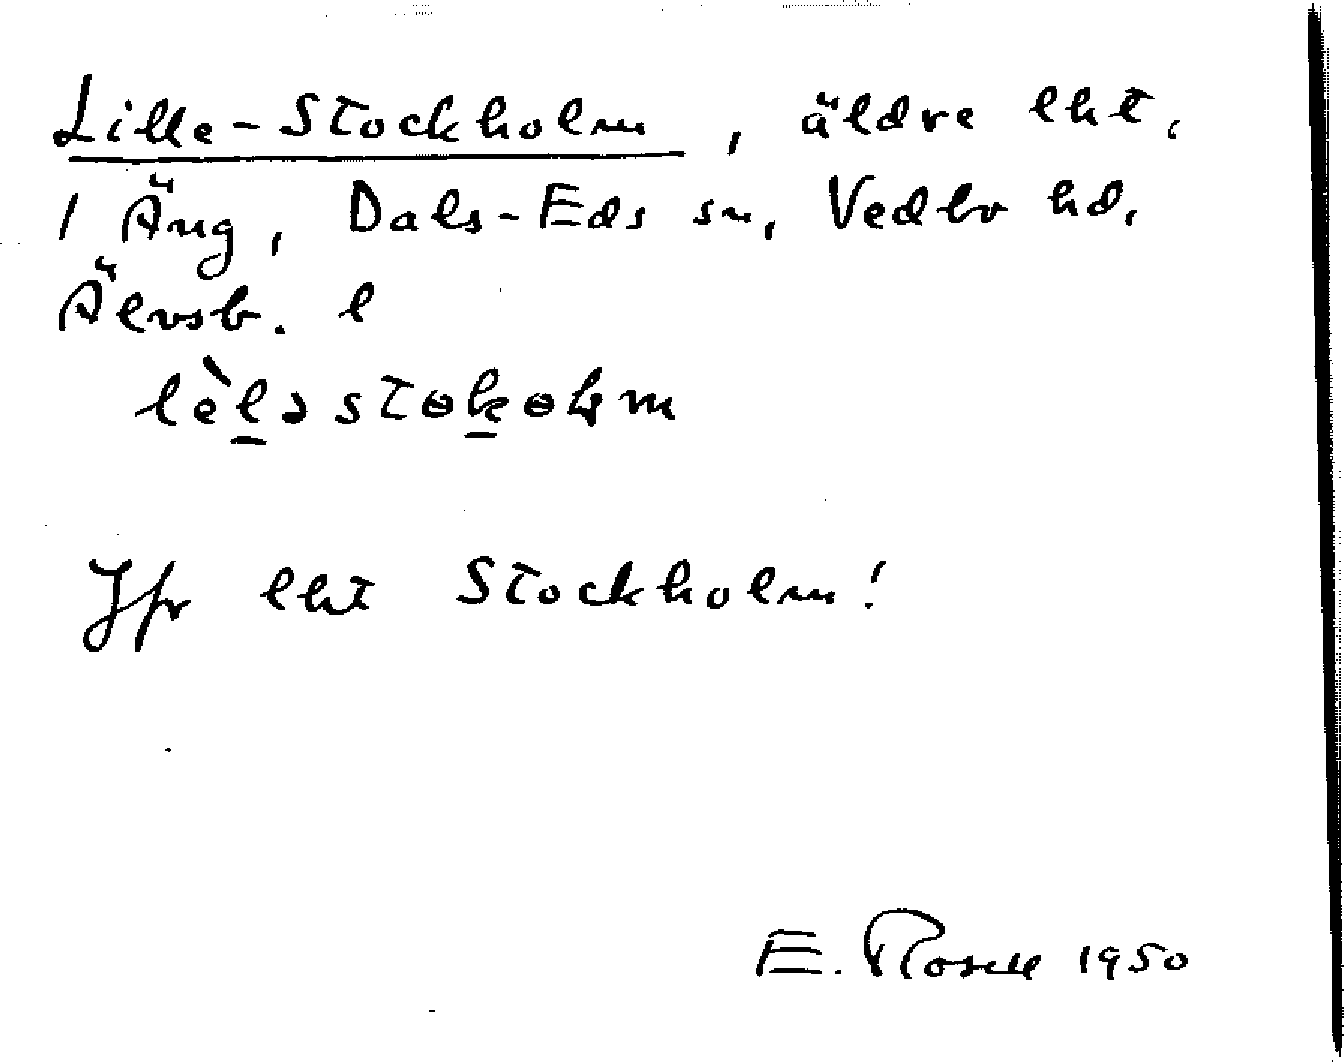 Lille-Stockholm, äldre lht.
1 Äng, Dals-Eds sn, Vedbo hd,
Älvsb. l
lèl̠ə stɵk̠ɵɫm
Jfr lht Stockholm!
E. Rosell 1950